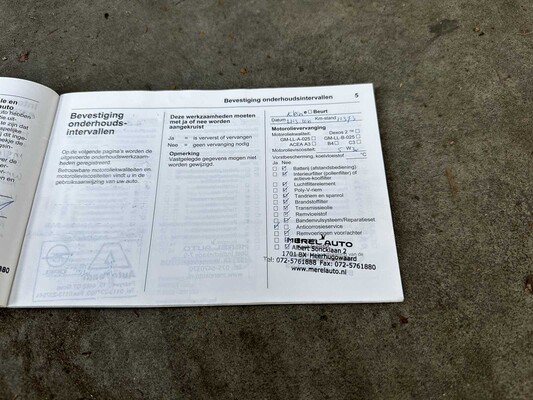 Bevestiging onderhoudsintervallen 5
Bevestiging
onderhouds-
intervallen
Op de volgende pagina's worden de
uitgevoerde onderhoudswerkzaam-
heden geregistreerd
Betrouwbare motoroliekwaliteiten en
motorolieviscositeiten vindt u in de
gebruiksaanwijzing van uw auto.
Deze werkzaamheden moeten
met ja of nee worden
aangekruist
Ja = is ververst of vervangen
Nee = geen vervanging nodig
Opmerking
Vastgelegde gegevens mogen niet
worden gewijzigd.
e Beurt
Datum Km-stand
Motorolievervanging
Motoroliekwaliteit: Dexos 2 ™
GM-LL-A-025 GM-LL-B-025
ACEA A3 B4 C3
Motorolieviscositeit: 5 W
Vorstbescherming, koelvloeistof °C
Ja Nee
Batterij (afstandsbediening)
Interieurfilter (pollenfilter) of
actieve-koolfilter
Luchtfilterelement
Poly-V-riem
Tandriem en spanrol
Brandstoffilter
Transmissieolie
Remvloeistof
Bandenvulsysteem/Reparatieset
Anticorrosieservice
Remvoeringen voor/achter
MEREL AUTO
Albert Soncklaan 2
1701 BX Heerhugowaard
Tel: 072-5761888 Fax: 072-5761880
www.merelauto.nl